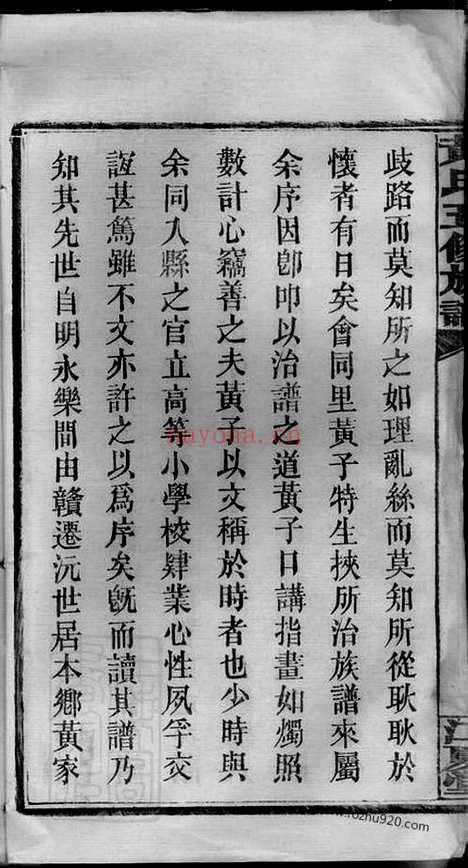 歧路而莫知所之如理亂絲而莫知所從耿耿於
懷者有日矣會同里黃子特生挾所治族譜來屬
余序因卽叩以治譜之道黃子口講指畫如燭照
數計心竊善之夫黃子以文稱於時者也少時與
余同入縣之官立高等小學校肄業心性夙孚交
誼甚篤雖不文亦許之以爲序矣旣而讀其譜乃
知其先世自明永樂間由贛遷沅世居本鄉黃家
黃氏五修族譜
江夏堂
nayona.cn
www.rozhu920.com